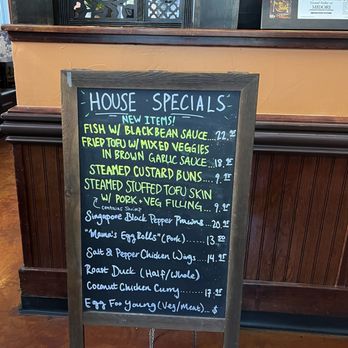 HOUSE SPECIALS
NEW ITEMS!
FISH W/ BLACKBEAN SAUCE...22.95
FRIED TOFU W/ MIXED VEGGIES
IN BROWN GARLIC SAUCE...18.95
STEAMED CUSTARD BUNS....9.95
STEAMED STUFFED TOFU SKIN
W/ PORK + VEG FILLING...9.95
Singapore Black Pepper Prawns..20.95
"Mama's Egg Rolls" (Pork).....13
Salt & Pepper Chicken Wings....14.95
Roast Duck (Half/Whole)
Coconut Chicken Curry......17.95
Egg Foo Young (Veg/Meat)...$
MIDORI